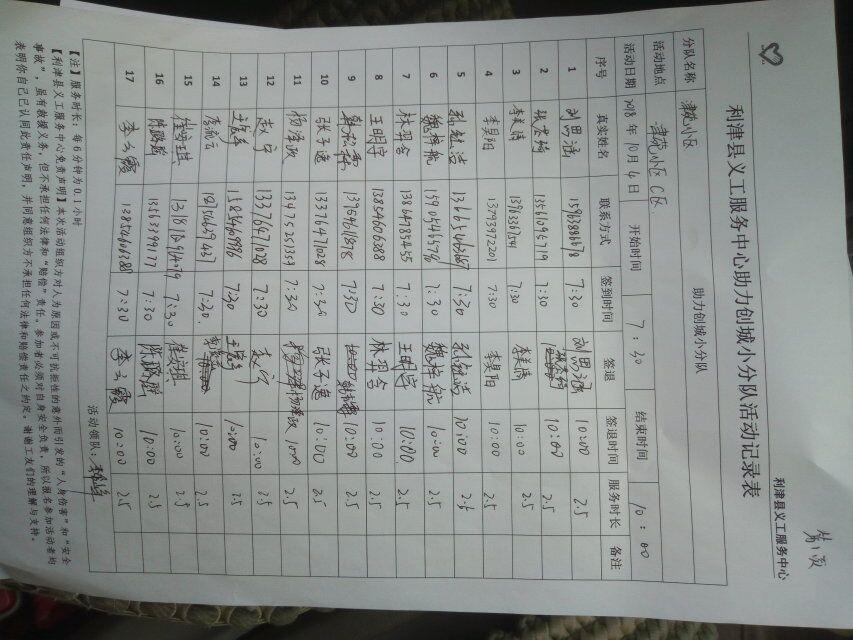 第1页
利津县义工服务中心
利津县义工服务中心助力创城小分队活动记录表
分队名称 津苑小区 助力创城小分队
活动地点 津苑小区C区
活动日期 2018年10月4日 开始时间 7:30 结束时间 10:00
序号 真实姓名 联系方式 签到时间 签退 签退时间 服务时长 备注
1 刘思涵 7:30 刘思涵 10:00 2.5
2 7:30 10:00 2.5
3 李美情 7:30 李美情 10:00 2.5
4 李昊阳 13793972201 7:30 李昊阳 10:00 2.5
5 7:30 10:00 2.5
6 魏梓航 7:30 魏梓航 10:00 2.5
7 林羿含 13864735455 7:30 王明宇 10:00 2.5
8 王明宇 13854606388 7:30 林羿含 10:00 2.5
9 13954611878 7:30 10:00 2.5
10 张子逸 13376471028 7:30 张子逸 10:00 2.5
11 杨泽政 13475257359 7:30 杨泽政 10:00 2.5
12 13376471028 7:30 10:00 2.5
13 7:30 10:00 2.5
14 7:30 10:00 2.5
15 崔安琪 7:30 崔安琪 10:00 2.5
16 陈鹏腾 13563399177 7:30 陈鹏腾 10:00 2.5
17 李云霞 13854660388 7:30 李云霞 10:00 2.5
活动领队:
【注】服务时长:每6分钟为0.1小时
【利津县义工服务中心免责声明】本次活动组织方对人为原因或不可抗拒性的意外而引发的“人身伤害”和“安全
事故”,虽有救援义务,但不承担任何法律和“赔偿”责任,参加者必须对自身安全负责,所以报名参加活动者均
表明你自己已认同此责任声明,并同意组织方不承担任何法律和赔偿责任之约定。谢谢工友们的理解与支持。